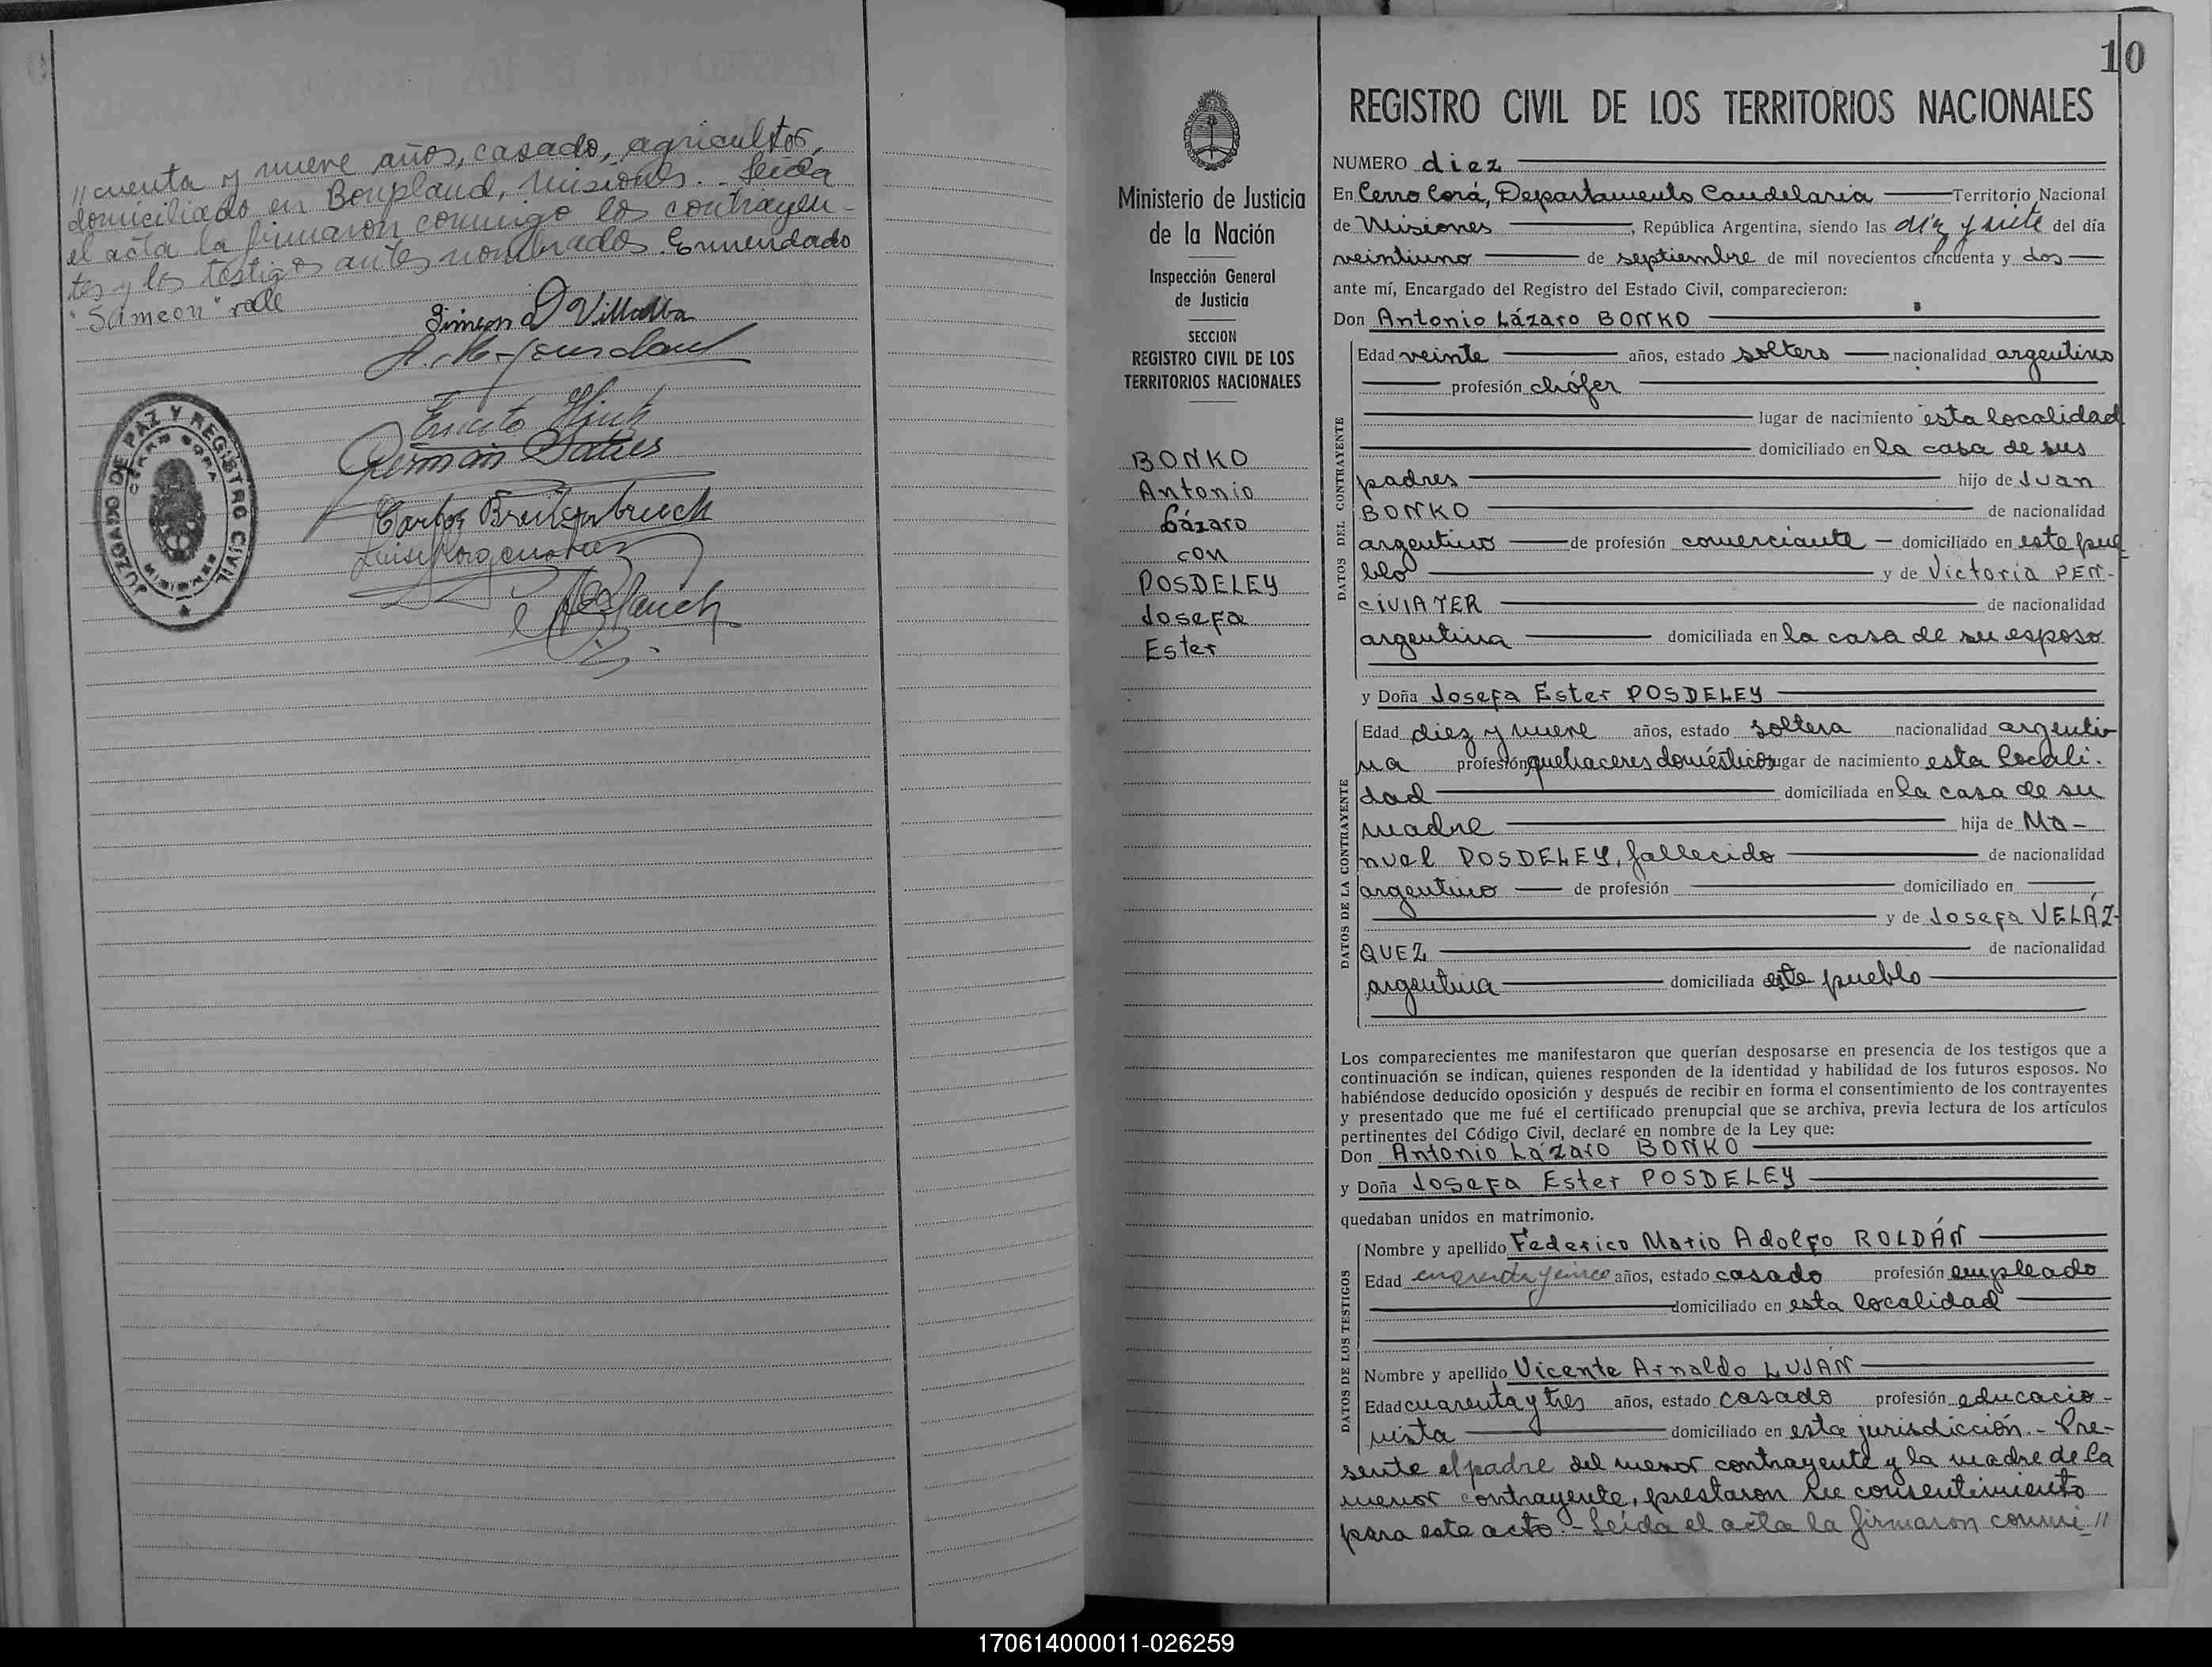 // cuenta y nueve años, casado, agricultor,
domiciliado en Bonpland, Misiones. - Leída
el acta la firmaron conmigo los contrayen-
tes y los testigos antes nombrados. Enmendado
"Simeon" vale
Simeon Villalba
Germán
Carlos Breitenbruch
JUZGADO DE PAZ Y REGISTRO CIVIL
CERRO CORA
MISIONES
10
Ministerio de Justicia
de la Nación
Inspección General
de Justicia
SECCION
REGISTRO CIVIL DE LOS
TERRITORIOS NACIONALES
BONKO
Antonio
Lázaro
con
POSDELEY
Josefa
Ester
REGISTRO CIVIL DE LOS TERRITORIOS NACIONALES
NUMERO diez
En Cerro Corá, Departamento Candelaria Territorio Nacional
de Misiones, República Argentina, siendo las diez y siete del día
veintiuno de septiembre de mil novecientos cincuenta y dos
ante mí, Encargado del Registro del Estado Civil, comparecieron:
Don Antonio Lázaro BONKO
DATOS DEL CONTRAYENTE
Edad veinte años, estado soltero nacionalidad argentino
profesión chófer
lugar de nacimiento esta localidad
domiciliado en la casa de sus
padres hijo de Juan
BONKO de nacionalidad
argentino de profesión comerciante - domiciliado en este pue
blo y de Victoria PEN-
CIVIATER de nacionalidad
argentina domiciliada en la casa de su esposo
y Doña Josefa Ester POSDELEY
DATOS DE LA CONTRAYENTE
Edad diez y nueve años, estado soltera nacionalidad argenti-
na profesión quehaceres domésticos lugar de nacimiento esta locali-
dad domiciliada en la casa de su
madre hija de Ma-
nuel POSDELEY, fallecido de nacionalidad
argentino de profesión domiciliado en
y de Josefa VELÁZ-
QUEZ de nacionalidad
argentina domiciliada este pueblo
Los comparecientes me manifestaron que querían desposarse en presencia de los testigos que a
continuación se indican, quienes responden de la identidad y habilidad de los futuros esposos. No
habiéndose deducido oposición y después de recibir en forma el consentimiento de los contrayentes
y presentado que me fué el certificado prenupcial que se archiva, previa lectura de los artículos
pertinentes del Código Civil, declaré en nombre de la Ley que:
Don Antonio Lázaro BONKO
y Doña Josefa Ester POSDELEY
quedaban unidos en matrimonio.
DATOS DE LOS TESTIGOS
Nombre y apellido Federico Mario Adolfo ROLDÁN
Edad años, estado casado profesión empleado
domiciliado en esta localidad
Nombre y apellido Vicente Arnaldo LUJAN
Edad cuarenta y tres años, estado casado profesión educacio-
nista domiciliado en esta jurisdicción. - Pre-
sente el padre del menor contrayente y la madre de la
menor contrayente, prestaron su consentimiento
para este acto. - Leída el acta la firmaron conmi //
170614000011-026259